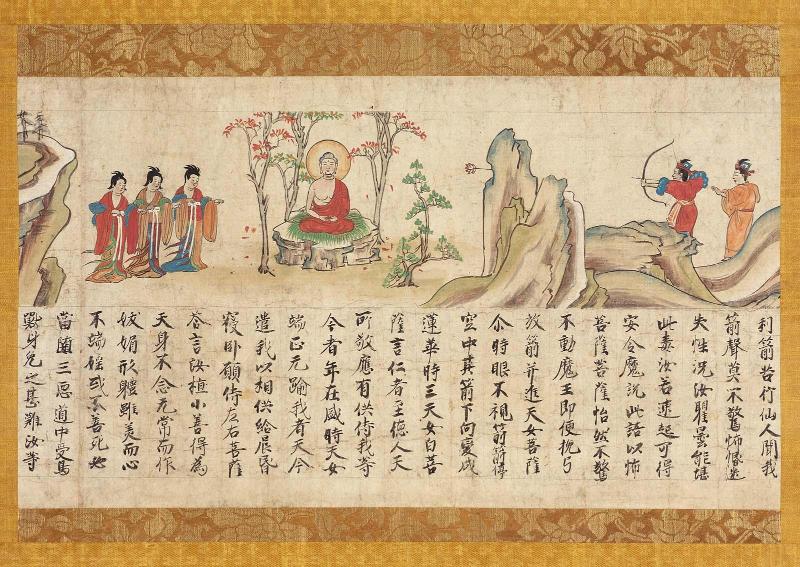 利箭苦行仙人聞我
箭聲莫不驚怖惛迷
失性況汝瞿曇能堪
此毒汝若速起可得
安全魔說此語以怖
菩薩菩薩怡然不驚
不動魔王即便挽弓
放箭并進天女菩薩
尒時眼不視箭箭停
空中其箭下向變成
蓮華時三天女白菩
薩言仁者至德人天
所敬應有供侍我等
今者年在盛時天女
端正无踰我者天今
遣我以相供給晨昏
寢卧願侍左右菩薩
荅言汝植小善得為
天身不念无常而作
妖媚形體雖美而心
不端婬或不善死必
當墮三惡道中受鳥
獸身免之甚難汝等